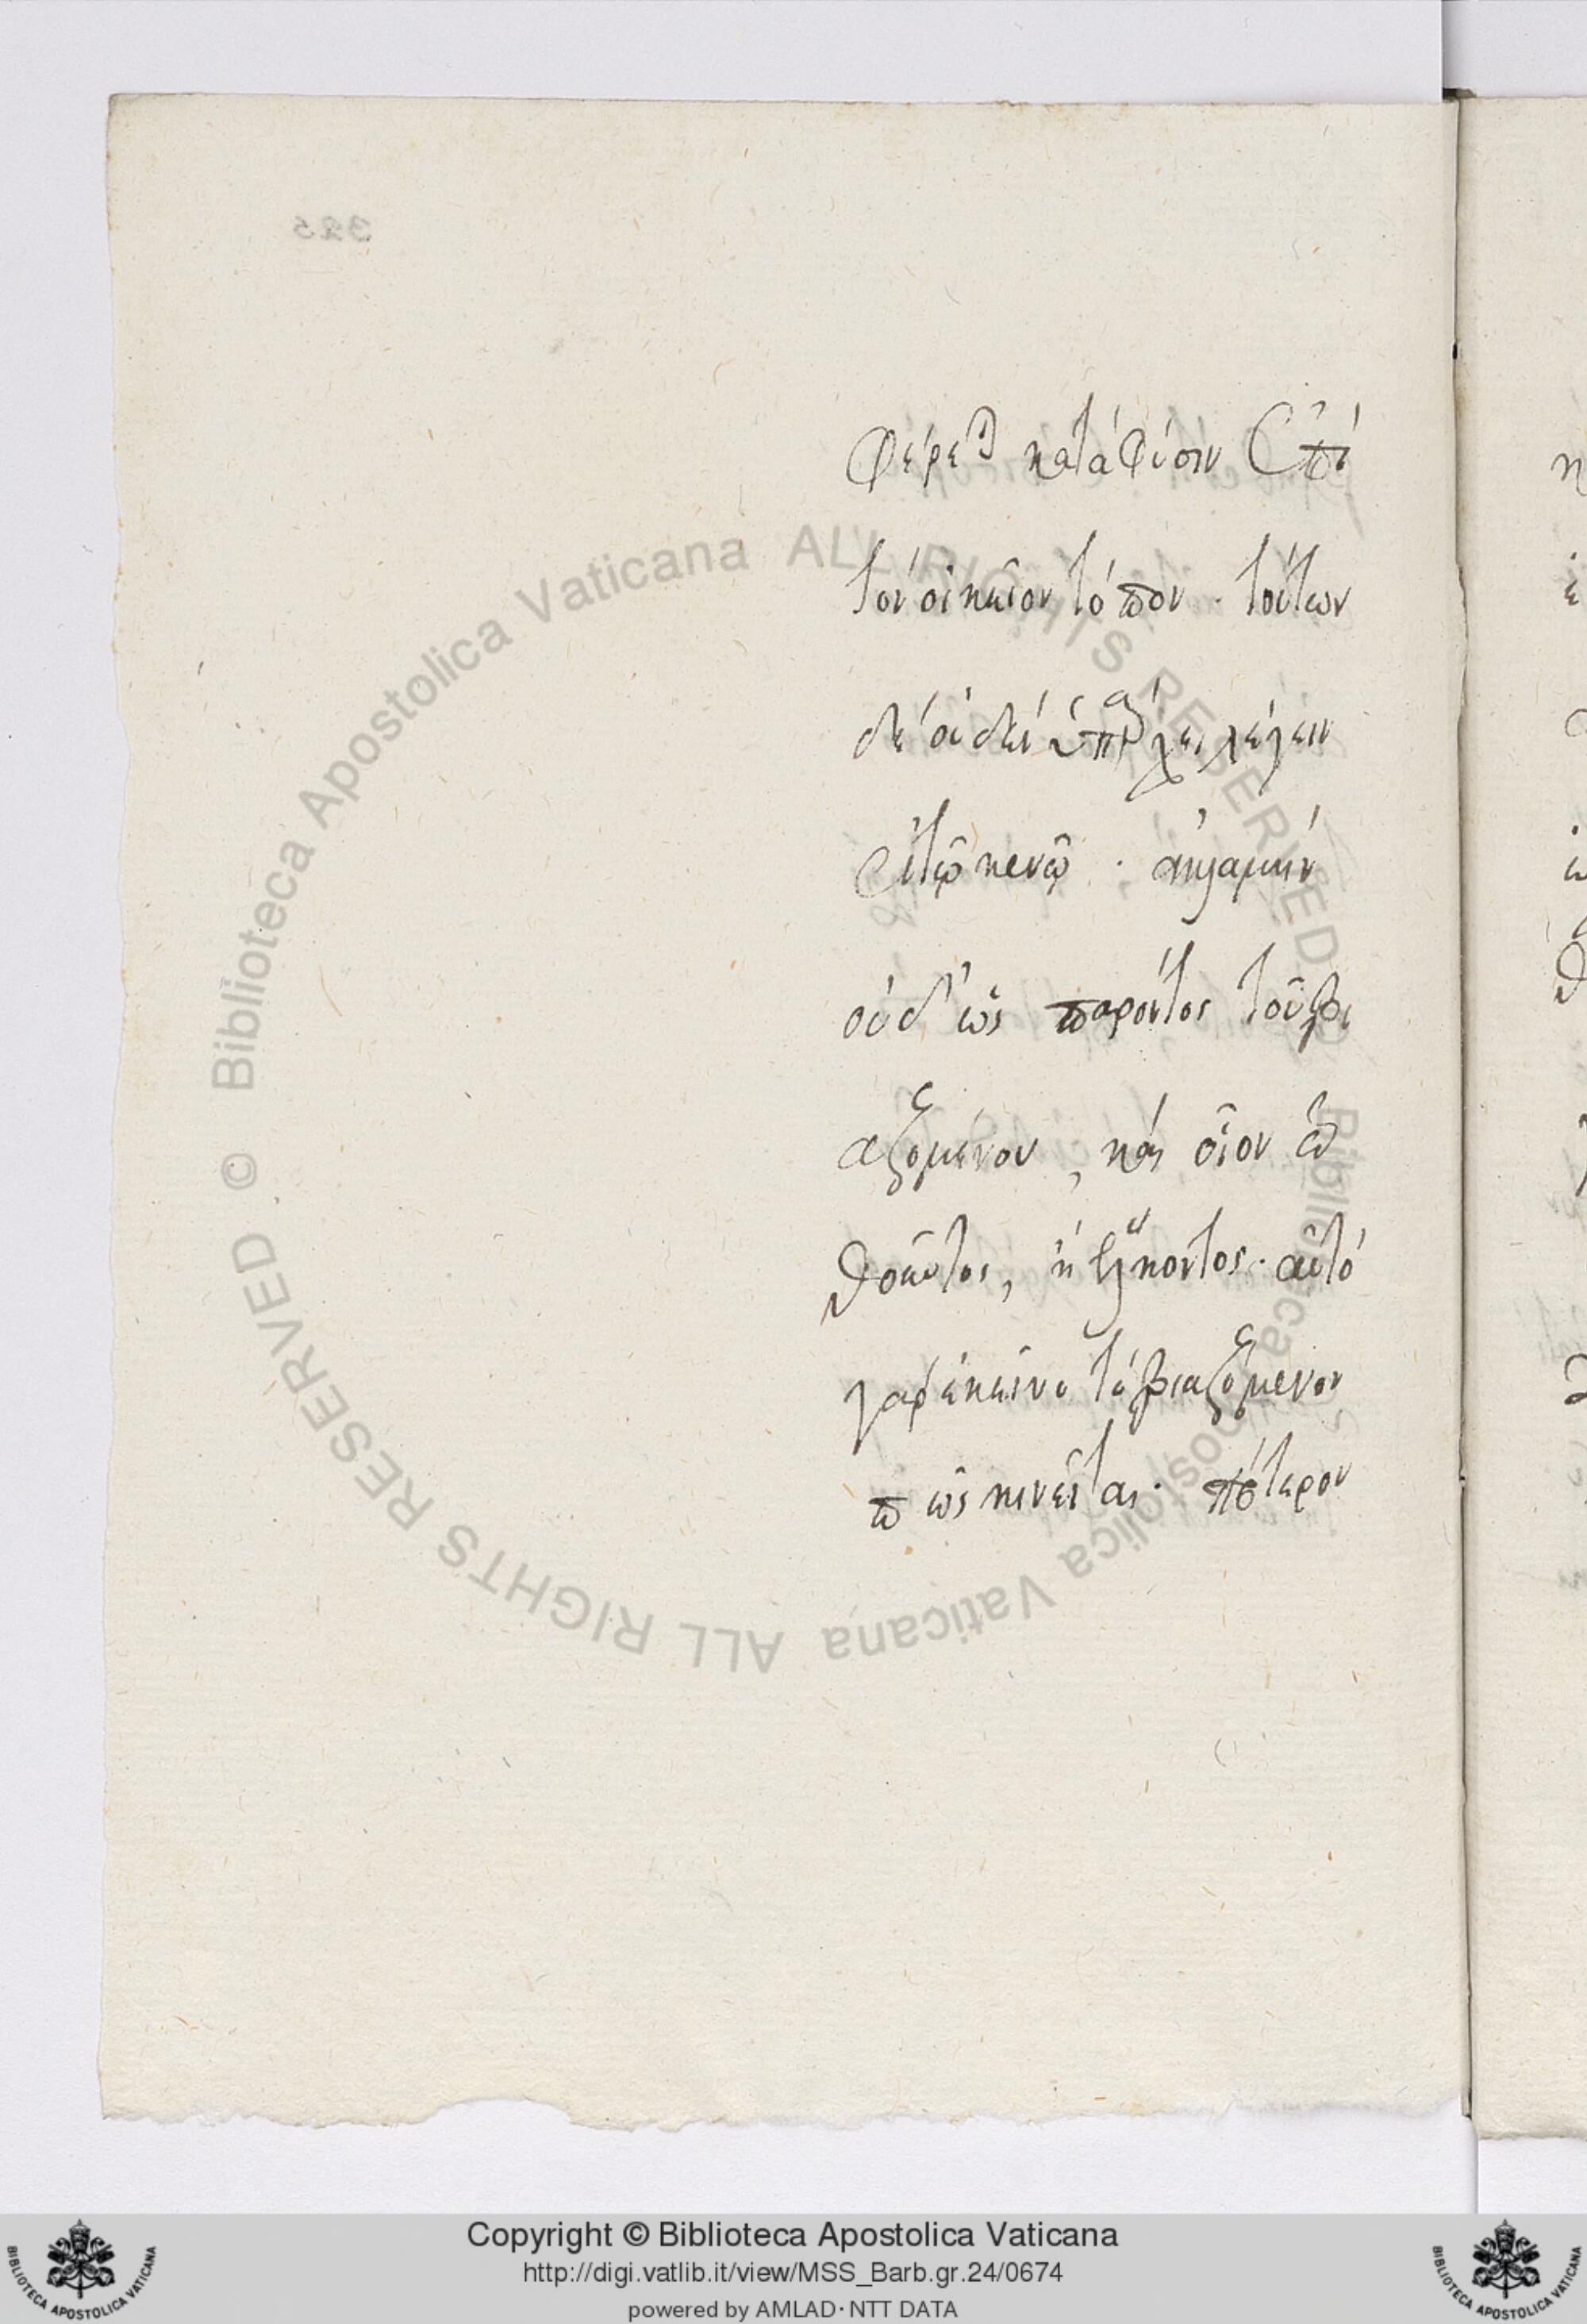 325
φέρεται κατὰ φύσιν ἐπὶ
τὸν οἰκεῖον τόπον· τούτων
δὲ οὐδὲν ὑπάρχει λέγειν
ἐν τῷ κενῷ· ἀλλὰ μὴν
οὐδ' ὡς παρόντος τοῦ βι
αζομένου, καὶ οἷον ὠ
θοῦντος, ἢ ἕλκοντος· αὐτὸ
γὰρ ἐκεῖνο τὸ βιαζόμενον
πῶς κινεῖται· πότερον
© Biblioteca Apostolica Vaticana ALL RIGHTS RESERVED
© Biblioteca Apostolica Vaticana ALL RIGHTS RESERVED
Copyright © Biblioteca Apostolica Vaticana
http://digi.vatlib.it/view/MSS_Barb.gr.24/0674
powered by AMLAD · NTT DATA
BIBLIOTECA APOSTOLICA VATICANA
BIBLIOTECA APOSTOLICA VATICANA